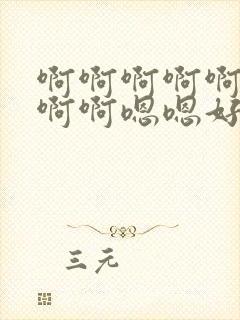 啊啊啊啊啊
啊啊嗯嗯好
三元